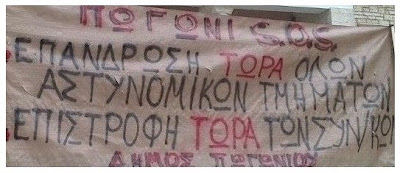 ΠΩΓΩΝΙ S.O.S.
ΕΠΑΝΔΡΩΣΗ ΤΩΡΑ ΟΛΩΝ
ΑΣΤΥΝΟΜΙΚΩΝ ΤΜΗΜΑΤΩΝ
ΕΠΙΣΤΡΟΦΗ ΤΩΡΑ ΤΩΝ ΣΥΝ/ΚΩΝ
ΔΗΜΟΣ ΠΩΓΩΝΙΟΥ